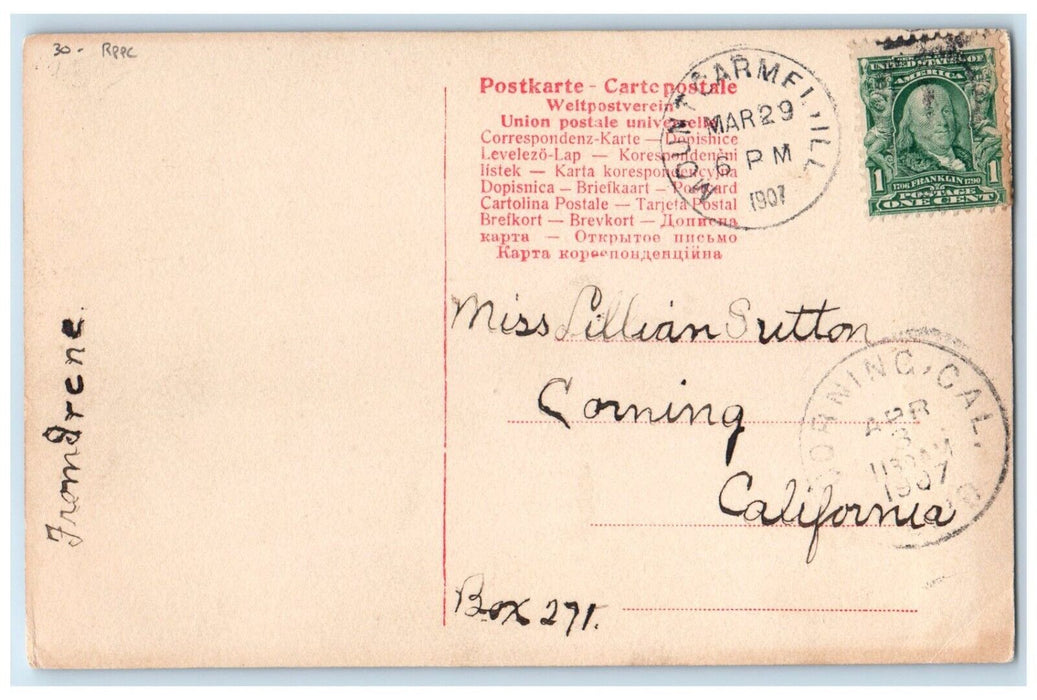 30- Rppc
Postkarte - Carte postale
Weltpostverein
Union postale universelle
Correspondenz-Karte — Dopisnice
Levelező-Lap — Korespondenční
lístek — Karta korespondencyjna
Dopisnica — Briefkaart — Postcard
Cartolina Postale — Tarjeta Postal
Brefkort — Brevkort — Дописна
карта — Открытое письмо
Карта кореспонденційна
MOUNT CARMEL, ILL
MAR 29
6 PM
1907
UNITED STATES OF
AMERICA
1 1
1706 FRANKLIN 1790
POSTAGE
ONE CENT
From Irene.
Miss Lillian Sutton
Corning
California
Box 271.
CORNING, CAL.
APR
3
1130AM
1907